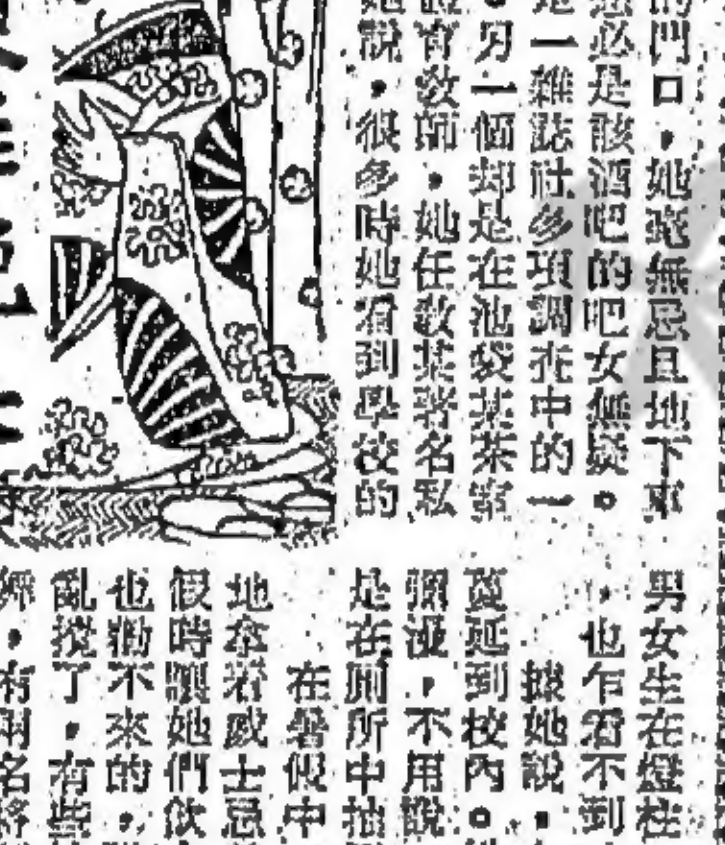 的門口，她毫無忌且地下車
必是該酒吧的吧女無疑。
一雜誌社多項調查中的一
。另一個却是在池袋某茶室
育教師，她任教某著名私
她說，很多時她看到學校的
男女生在燈柱
，也乍看不到
據她說，
蔓延到校內。
瀰漫，不用說
是在厠所中抽
在暑假中
地拿着威士忌
假時讓她們飲
也勸不來的，
亂攪了，有些
，有兩名